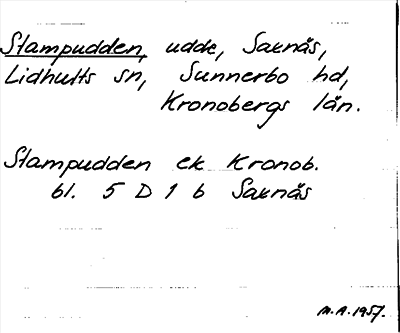 Stampudden, udde, Saxnäs,
Lidhults sn, Sunnerbo hd,
Kronobergs län.
Stampudden ek Kronob.
bl. 5 D 1 b Saxnäs
M.A. 1957.